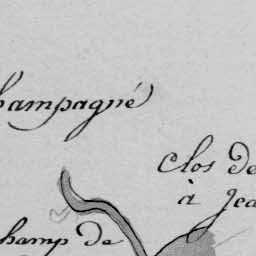 hampagné
Clos de
à Jea
hamp de